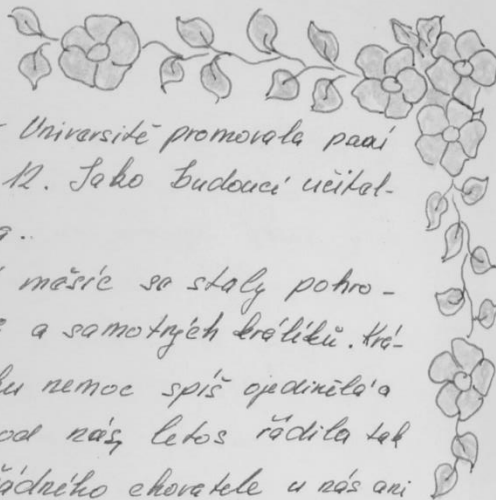 Universitě promovala paní
12. Jako budoucí učital-
a.
měsíc se staly pohro-
a samotných králíků. Krá-
ku nemoc spíš ojedinělá a
od nás, letos řádila tak
řádného chovatele u nás ani